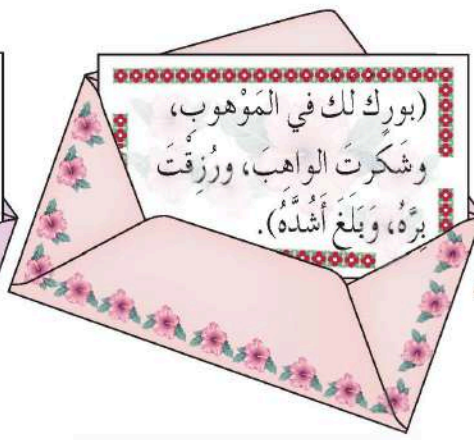 (بورك لك في المَوْهوبِ،
وشَكَرتَ الواهِبَ، ورُزِقْتَ
بِرَّهُ، وَبَلَغَ أَشُدَّهُ).